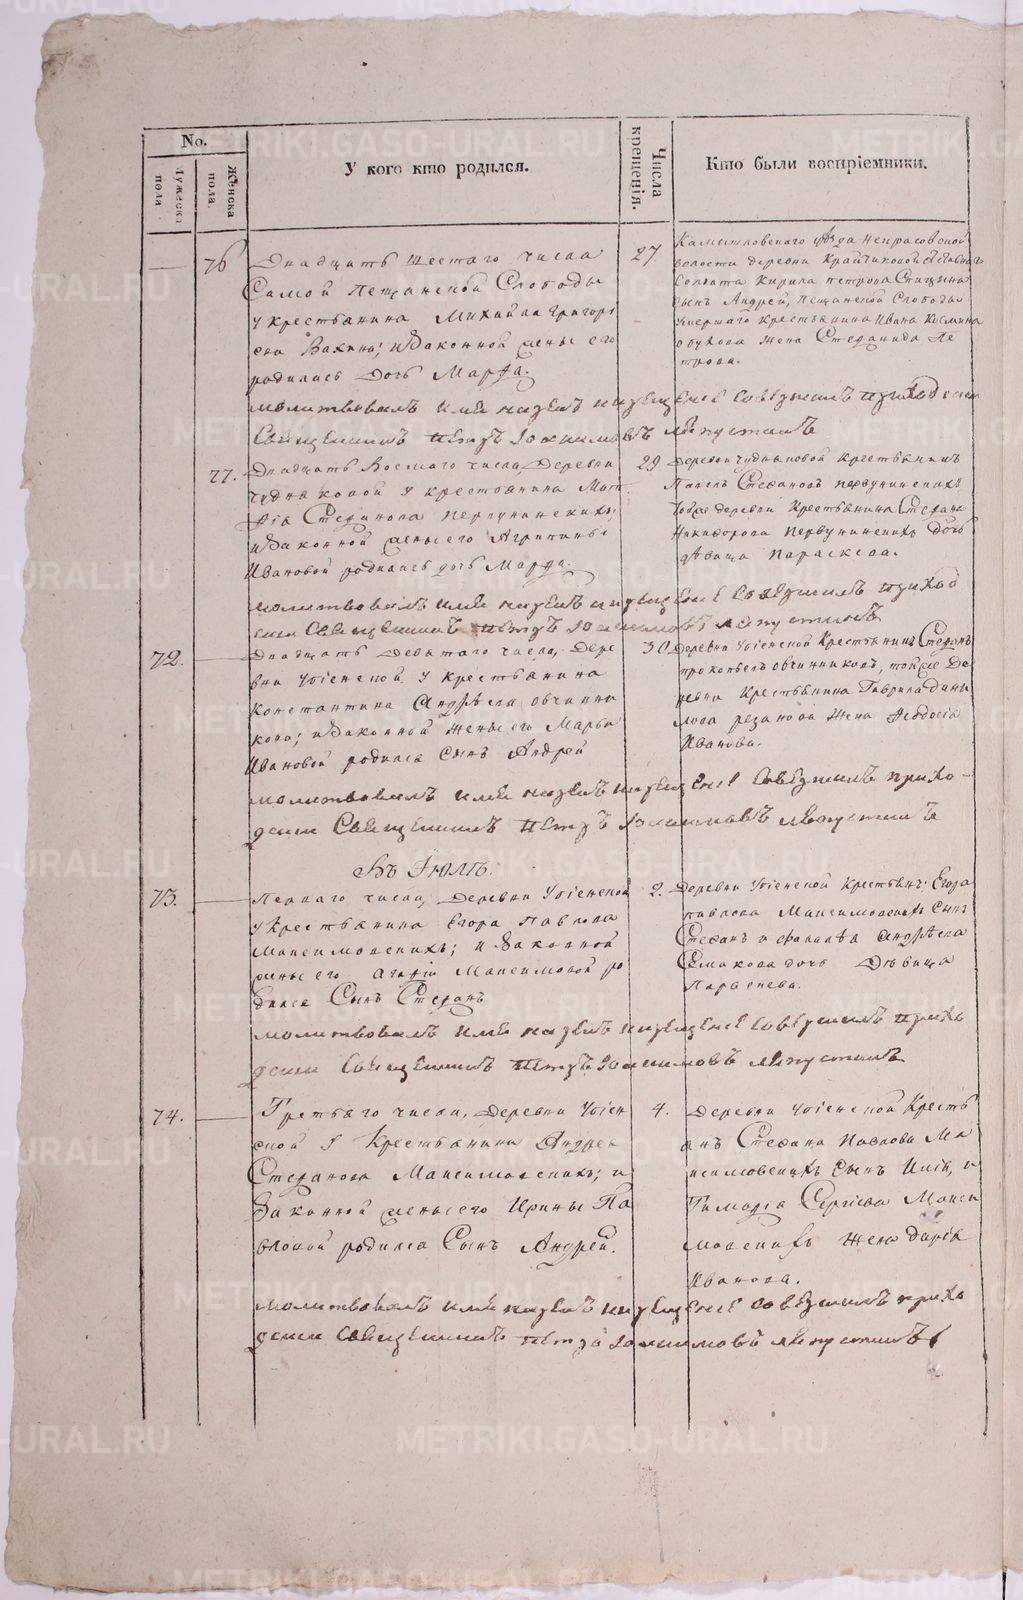 No.
Мужеска пола
Женска пола.
У кого кто родился.
Числа крещенія.
Кто были воспріемники.
76
Двадцать шестаго числа
Самой Пещанской Слободы
у крестьянина Михайла Григорі
ева Вахина; и законной жены его
родилась дочь Марфа.
27
Камышловскаго уѣзда Некрасовской
волости деревни
Солдата Кирила Петрова
сынъ Андрей, Пещанской Слободы
умершаго крестьянина Ивана Козмина
Обухова жена Степанида Пе
трова.
молитвовалъ имя нарекъ и крещеніе совершилъ приходскии
Священникъ Петръ
77.
Двадцать Восмаго числа, Деревни
Чудиновой у крестьянина Мат
фея Степанова Первунинскихъ;
и законной жены его Агрипины
Ивановой родилась дочь Марфа.
29
Деревни Чудиновой крестьянинъ
Павелъ Степановъ Первунинскихъ
той же деревни Крестьянина Степана
Никифорова Первунинскихъ Дочь
дѣвица Параскева.
молитвовалъ имя нарекъ и крещеніе совершилъ приход
скии Священникъ Петръ
72.
Двадцать Девятаго числа, Дере
вни у крестьянина
Константина Андрѣева Овчинни
кова; и законной жены его Марьи
Ивановой родился Сынъ Андрей
30
Деревни Крестьянинъ Степанъ
Прокопьевъ Овчинниковъ, той же Де
ревни Крестьянина Гаврила Дани
лова Рязанова Жена Феодосія
Иванова.
молитвовалъ имя нарекъ и крещеніе совершилъ прихо-
дскии Священникъ Петръ
Въ Іюлѣ.
73.
Перваго числа, Деревни
у Крестьянина Егора Павлова
Максимовскихъ; и законной
жены его Агафіи Максимовой ро
дился Сынъ Степанъ
2.
Деревни Крестьян: Егора
Павлова Максимовскихъ сынъ
Степанъ и Андрѣева
Ермакова дочь Дѣвица
молитвовалъ имя нарекъ и крещеніе совершилъ прихо
дскии Священникъ Петръ
74.
Третьяго числа, Деревни
у Крестьянина Андрея
Степанова Максимовскихъ; и
законной жены его Ирины Па
вловой родился Сынъ Андрей.
4.
Деревни Кресть
янъ Степана Павлова Ма
ксимовскихъ Сынъ и
Тимофея Сергіева Макси
мовскихъ жена Дарія
Иванова.
молитвовалъ имя нарекъ и крещеніе совершилъ прихо
дскии Священникъ Петръ
METRIKI.GASO-URAL.RU